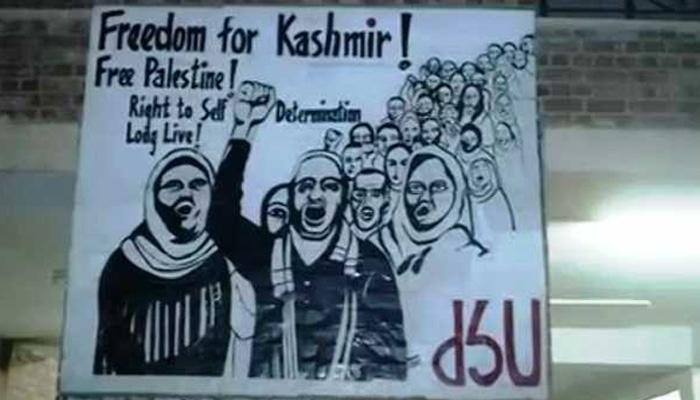 Freedom for Kashmir!
Free Palestine!
Right to Self Determination
Long Live!
dSU